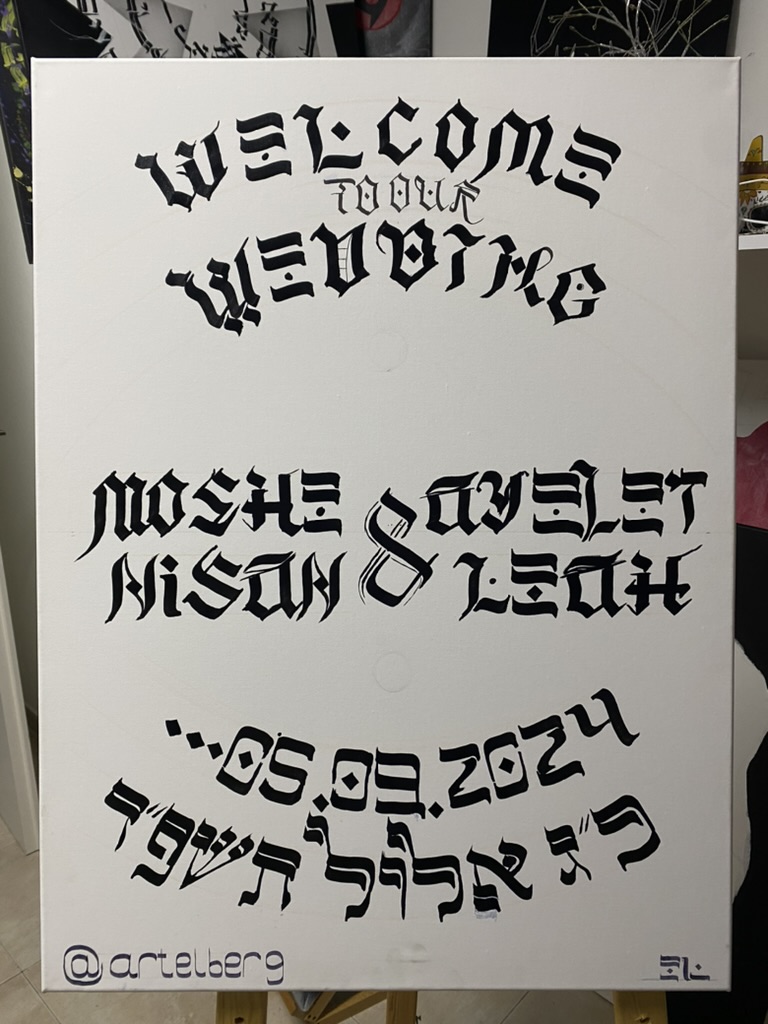 WELCOME
TO OUR
WEDDING
MOSHE & AYELET
NISAN LEAH
...05.09.2024
כ״ג אלול תשפ״ד
@artelberg
EL